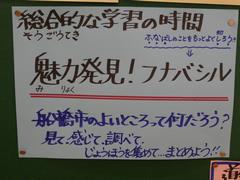 総合的な学習の時間
そうごうてき
ふなばしのことをもっとよくしろう
魅力発見！フナバシル
みりょく
船橋市のよいところって何だろう？
見て、感じて、調べて、
じょうほうを集めて…まとめよう！！